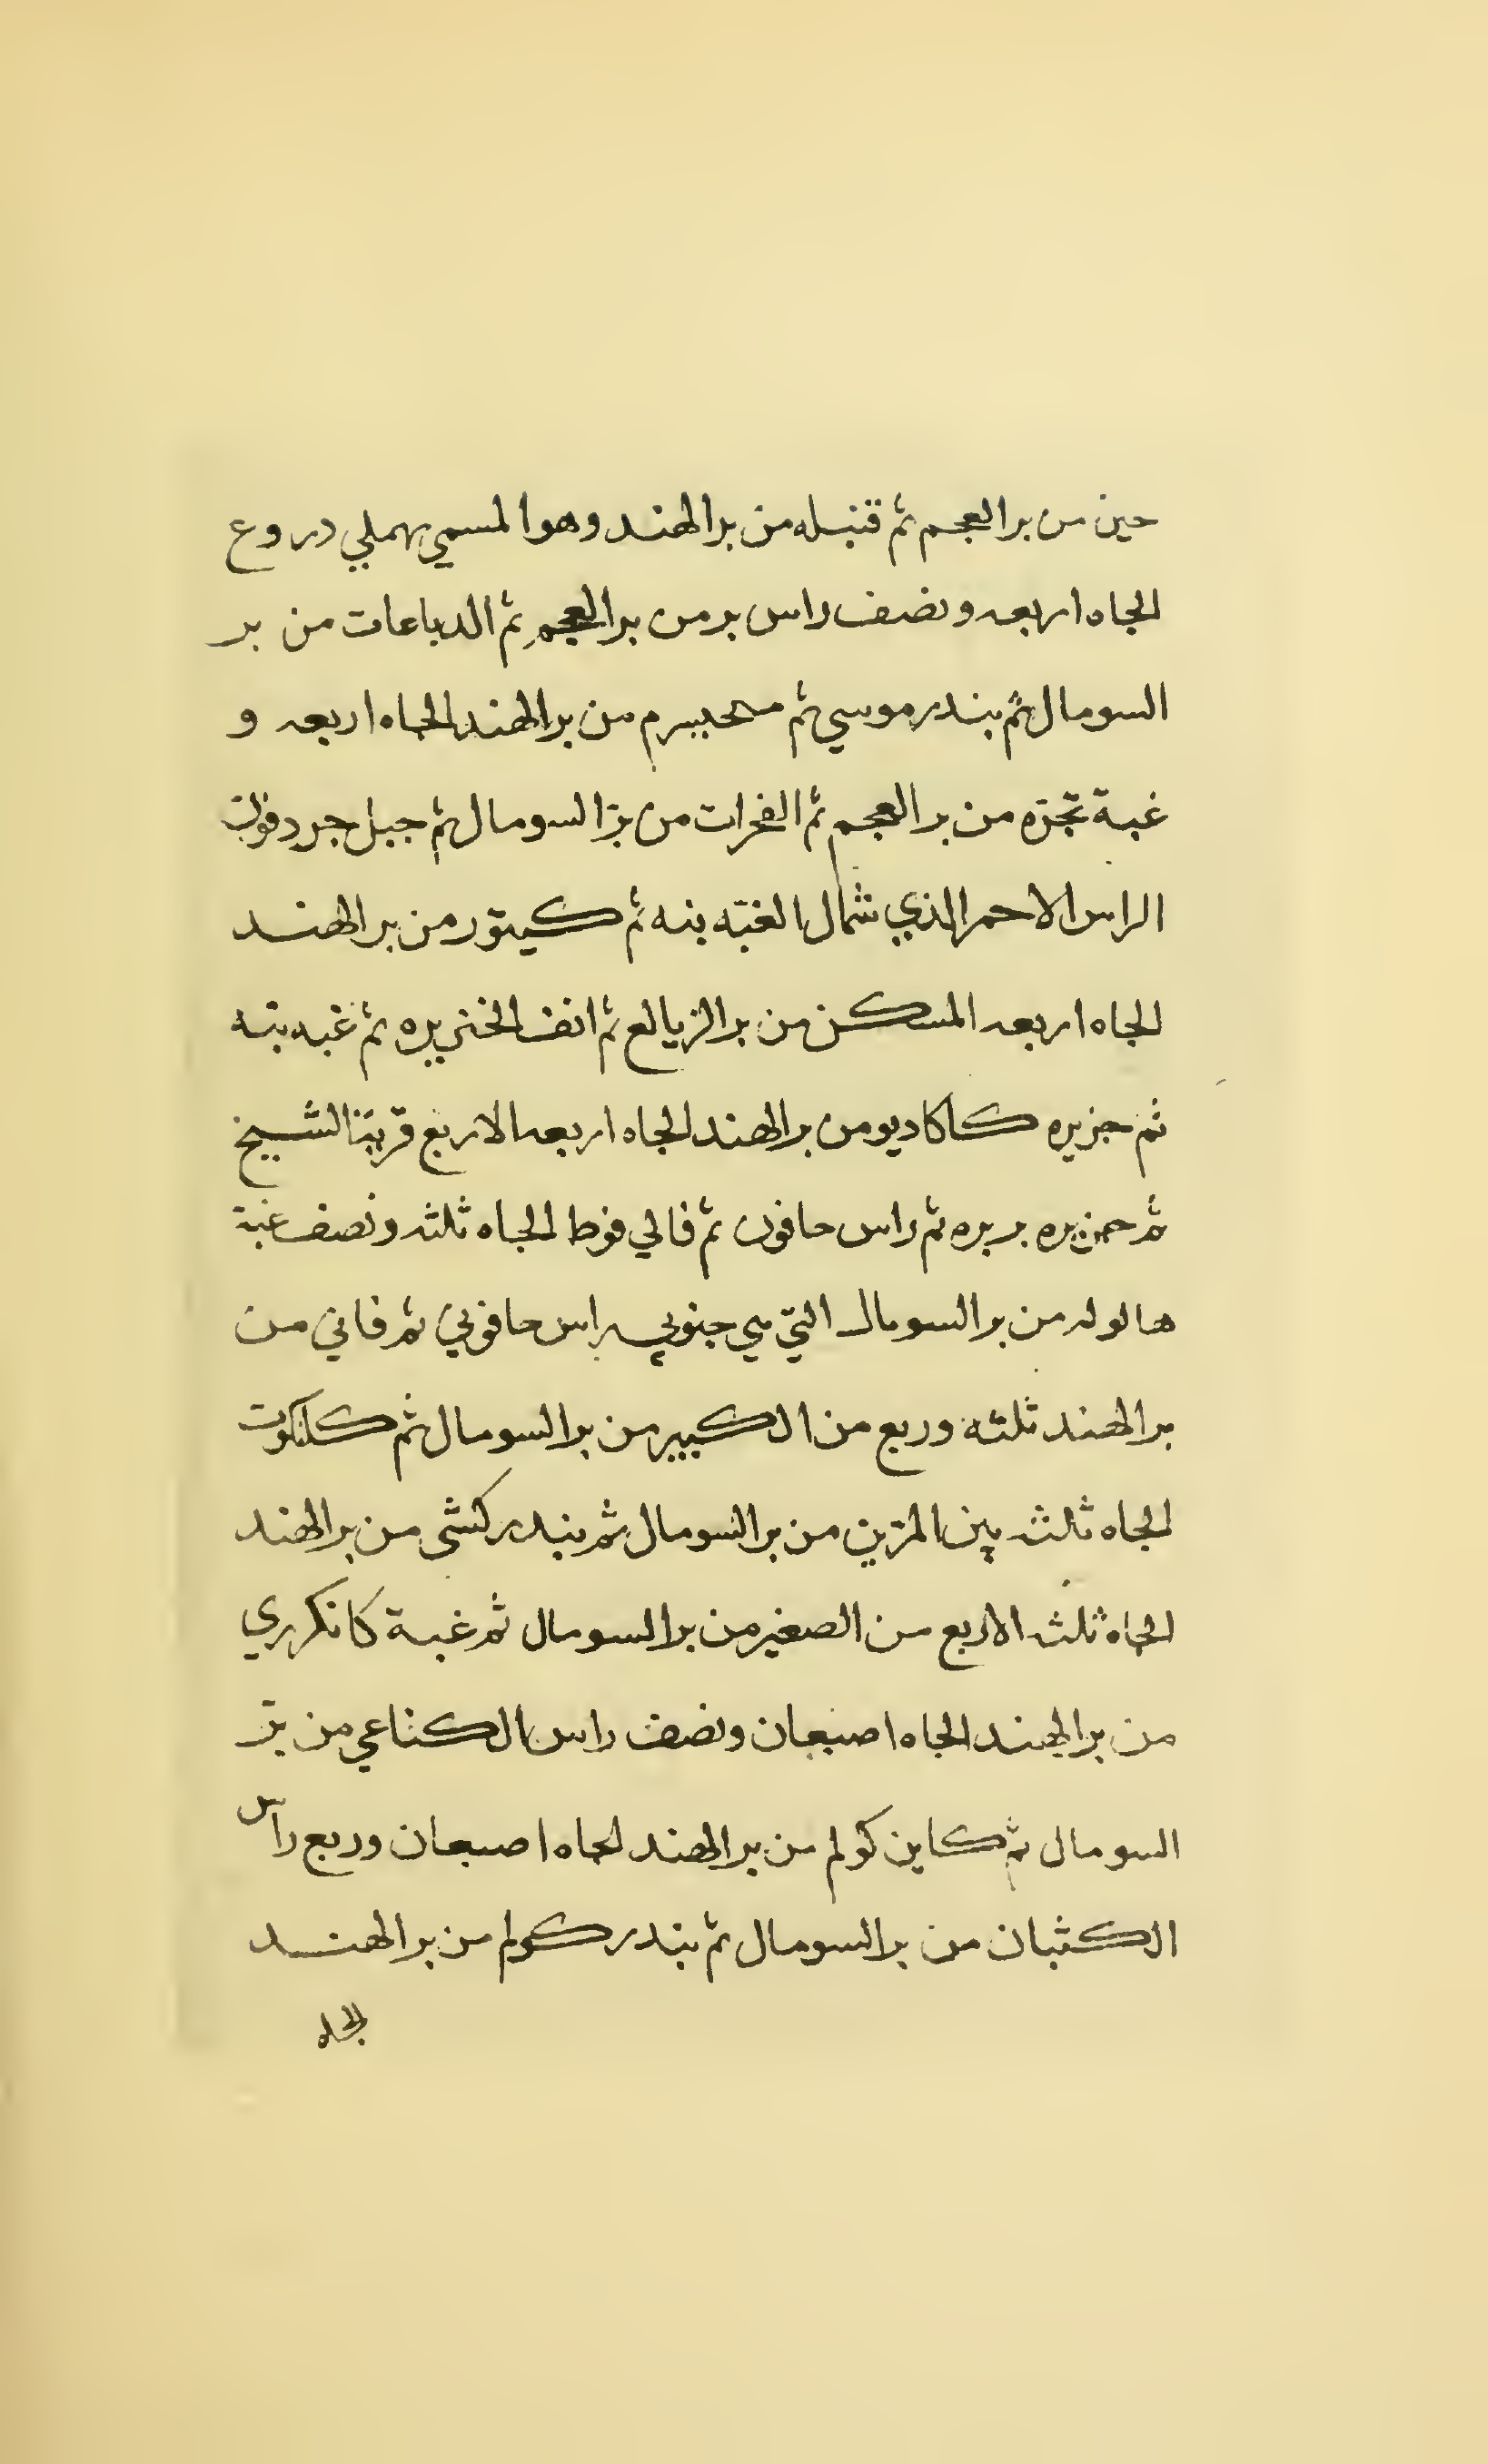 حين من بر العجم ثم قنبله من بر الهند وهو المسمي بهملي دروع
الجاه اربعه ونصف راس بر من بر العجم ثم الدباعات من بر
السومال ثم بندر موسي ثم من بر الهند الجاه اربعه و
غبة تجزه من بر العجم ثم الفخرات من بر السومال ثم جبل جردفون
الراس الاحمر الذي شمال الغبه بنه ثم كيتور من بر الهند
الجاه اربعه المسكن من بر الزيالع ثم انف الخنزيره ثم غبه بنه
ثم جزيره كاكاديو من بر الهند الجاه اربعه الا ربع قريتا الشيخ
ثم جزيره بربره ثم راس حافون ثم فالي فوط الجاه ثلثه ونصف غبة
هالوله من بر السومال التي هي جنوبي راس حافوني ثم فاني من
بر الهند ثلثه وربع من الكبير من بر السومال ثم كلنكوت
الجاه ثلثه بين المزين من بر السومال ثم بندر كشي من بر الهند
الجاه ثلثه الا ربع من الصغير من بر السومال ثم غبة كانكرري
من بر الهند الجاه اصبعان ونصف راس الكناعي من بر
السومال ثم كاين كولم من بر الهند لجاه اصبعان وربع راس
الكثبان من بر السومال ثم بندر كولم من بر الهند
الجاه